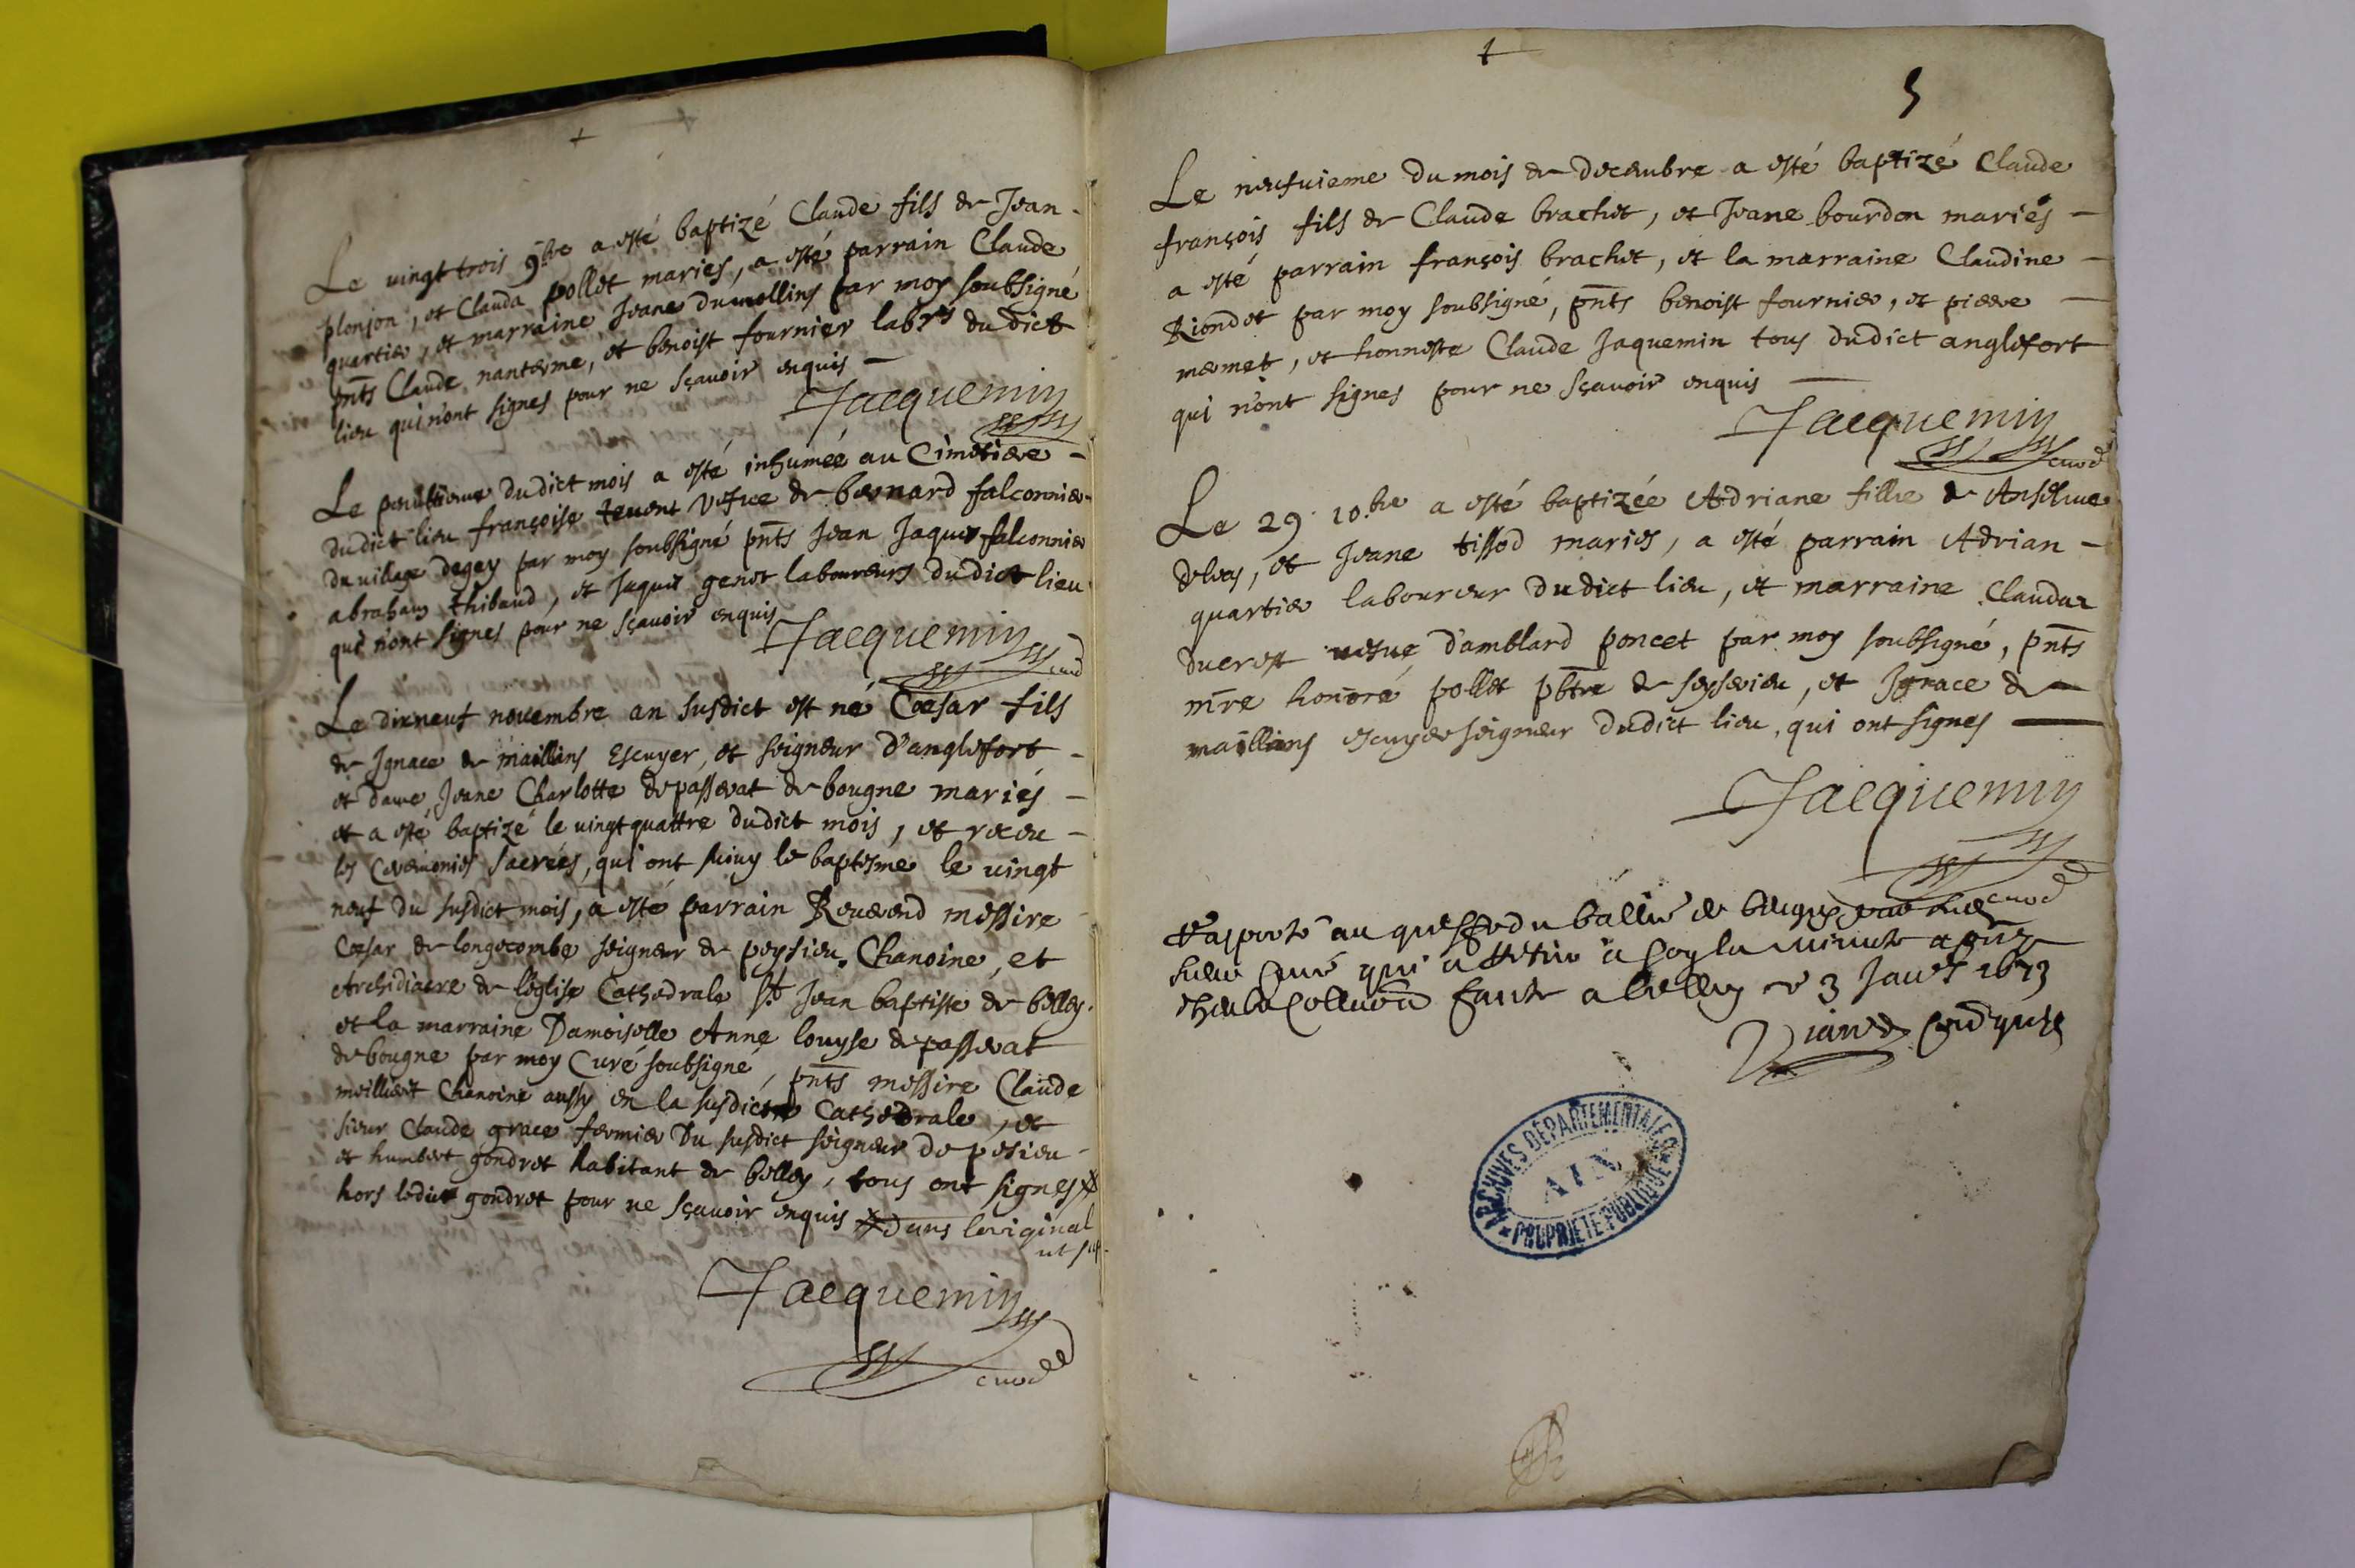 Le vingt trois 9bre a esté baptizé Claude fils de Jean
plonjon, et Clauda pollet mariés, a esté parrain Claude
quartier, et marraine Jeane dumollins par moy soubsigné
pnts Claude nanterme, et benoist fournier labrs du dict
lieu qui n'ont signes pour ne sçavoir enquis
Jacquemin
Le penultieme dudict mois a esté inhumée au Cimetiere
dudict lieu françoise tevent vefue de bernard falconnier
du village degey par moy soubsigné pnts Jean Jaques falconnier
abraham thibaud, et Jaques genot laboureurs dudict lieu
qui n'ont signes pour ne sçavoir enquis
Jacquemin curé
Le dixneuf novembre an susdict est né Cæsar fils
de Ignace de maillans Escuyer, et seigneur D'anglefort
et dame Jeane Charlotte depasserat de bougne mariés
et a esté baptizé le vingt quattre dudict mois, et receu
les Ceremonies sacrées, qui ont suiuy le baptesme le vingt
neuf du susdict mois, a esté parrain Reuerend messire
Cæsar de longecombe seigneur de peysieu. Chanoine, et
Archidiacre de l'eglise Cathedrale St Jean baptiste de belley.
et la marraine Damoiselle Anne louyse depasserat
de bougne par moy Curé soubsigné, pnts messire Claude
meillieret Chanoine aussy en la susdicte Cathedrale, et
sieur Claude grace fermier Du susdict seigneur de pesieu
et humbert gondret habitant de belley, tous ont signes
hors ledict gondret pour ne sçavoir enquis Dans l'original
ut sup.
Jacquemin
curé
5
Le neufuieme du mois de decembre a esté baptizé Claude
françois fils de Claude brachet, et Jeane bourdon mariés
a esté parrain françois brachet, et la marraine Claudine
Riondet par moy soubsigné, pnts benoist fournier, et pierre
mermet, et honneste Claude Jaquemin tous dudict anglefort
qui n'ont signes pour ne sçavoir enquis
Jacquemin
curé
Le 29. 10.bre a esté baptizée Adriane fille de Anselme
deluas, et Jeane tissod mariés, a esté parrain Adrian
quartier laboureur dudict lieu, et marraine Claudaz
ducrest uefue d'amblard poncet par moy soubsigné, pnts
mre honoré pollet pbtre de seyserieu, et Ignace de
maillans escuyer seigneur dudict lieu, qui ont signes
Jacquemin
curé
Rapporté au greffe du balliage de beugey
sieur curé qui a retiré a soy la minute apres
collation faicte a belley ce 3 Janvr 1673
ARCHIVES DÉPARTEMENTALES
AIN
PROPRIÉTÉ PUBLIQUE